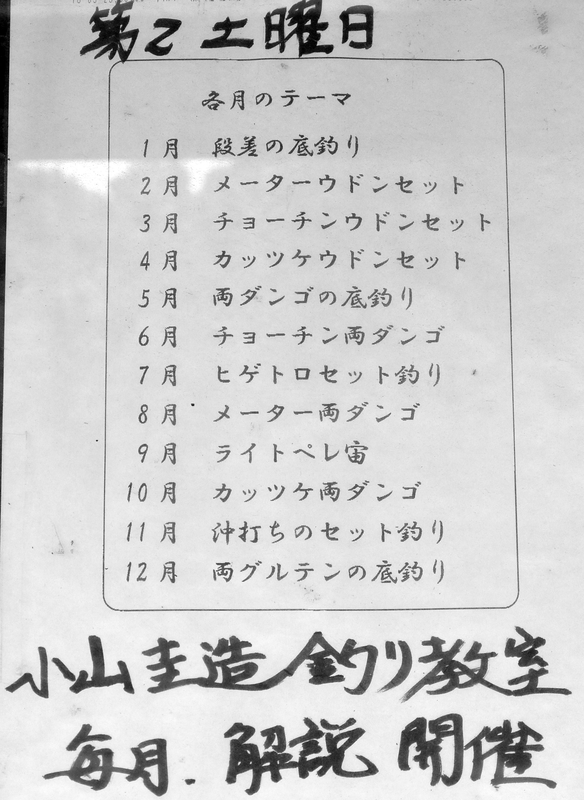 第2土曜日
各月のテーマ
1月 段差の底釣り
2月 メーターウドンセット
3月 チョーチンウドンセット
4月 カッツケウドンセット
5月 両ダンゴの底釣り
6月 チョーチン両ダンゴ
7月 ヒゲトロセット釣り
8月 メーター両ダンゴ
9月 ライトペレ宙
10月 カッツケ両ダンゴ
11月 沖打ちのセット釣り
12月 両グルテンの底釣り
小山圭造釣り教室
毎月.解説開催